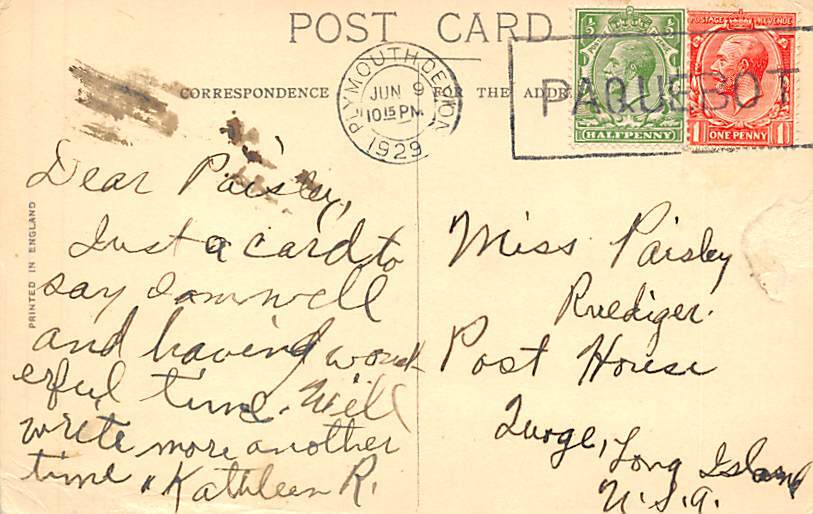 POST CARD
CORRESPONDENCE
FOR THE ADDR
PLYMOUTH DEVON
JUN 9
10 15 PM
1929
PAQUEBOT
POSTAGE REVENUE
½ ½
HALFPENNY
1 ONE PENNY 1
PRINTED IN ENGLAND
Dear Paisley,
Just a card to
say I am well
and having wond-
erful time. Will
write more another
time " Kathleen R.
Miss Paisley
Ruediger.
Post House
Long Island
U.S.A.